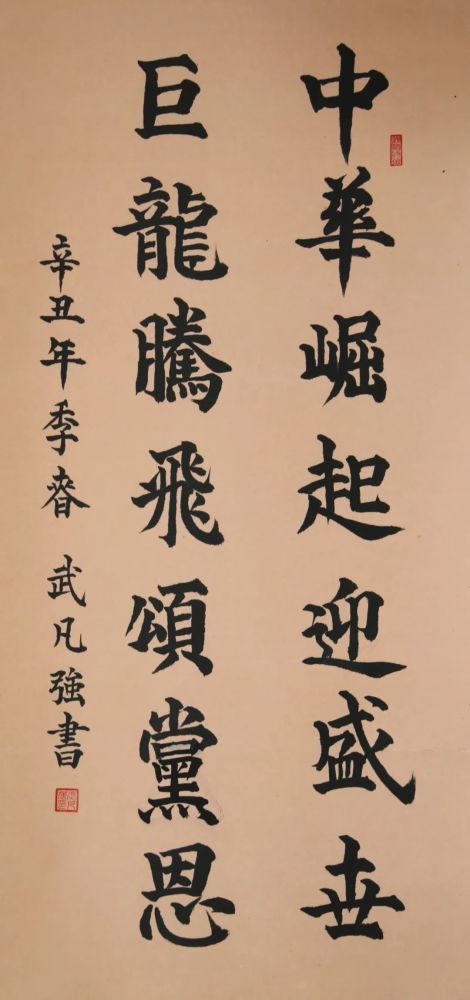 中華崛起迎盛世
巨龍騰飛頌黨恩
辛丑年季春 武凡強書